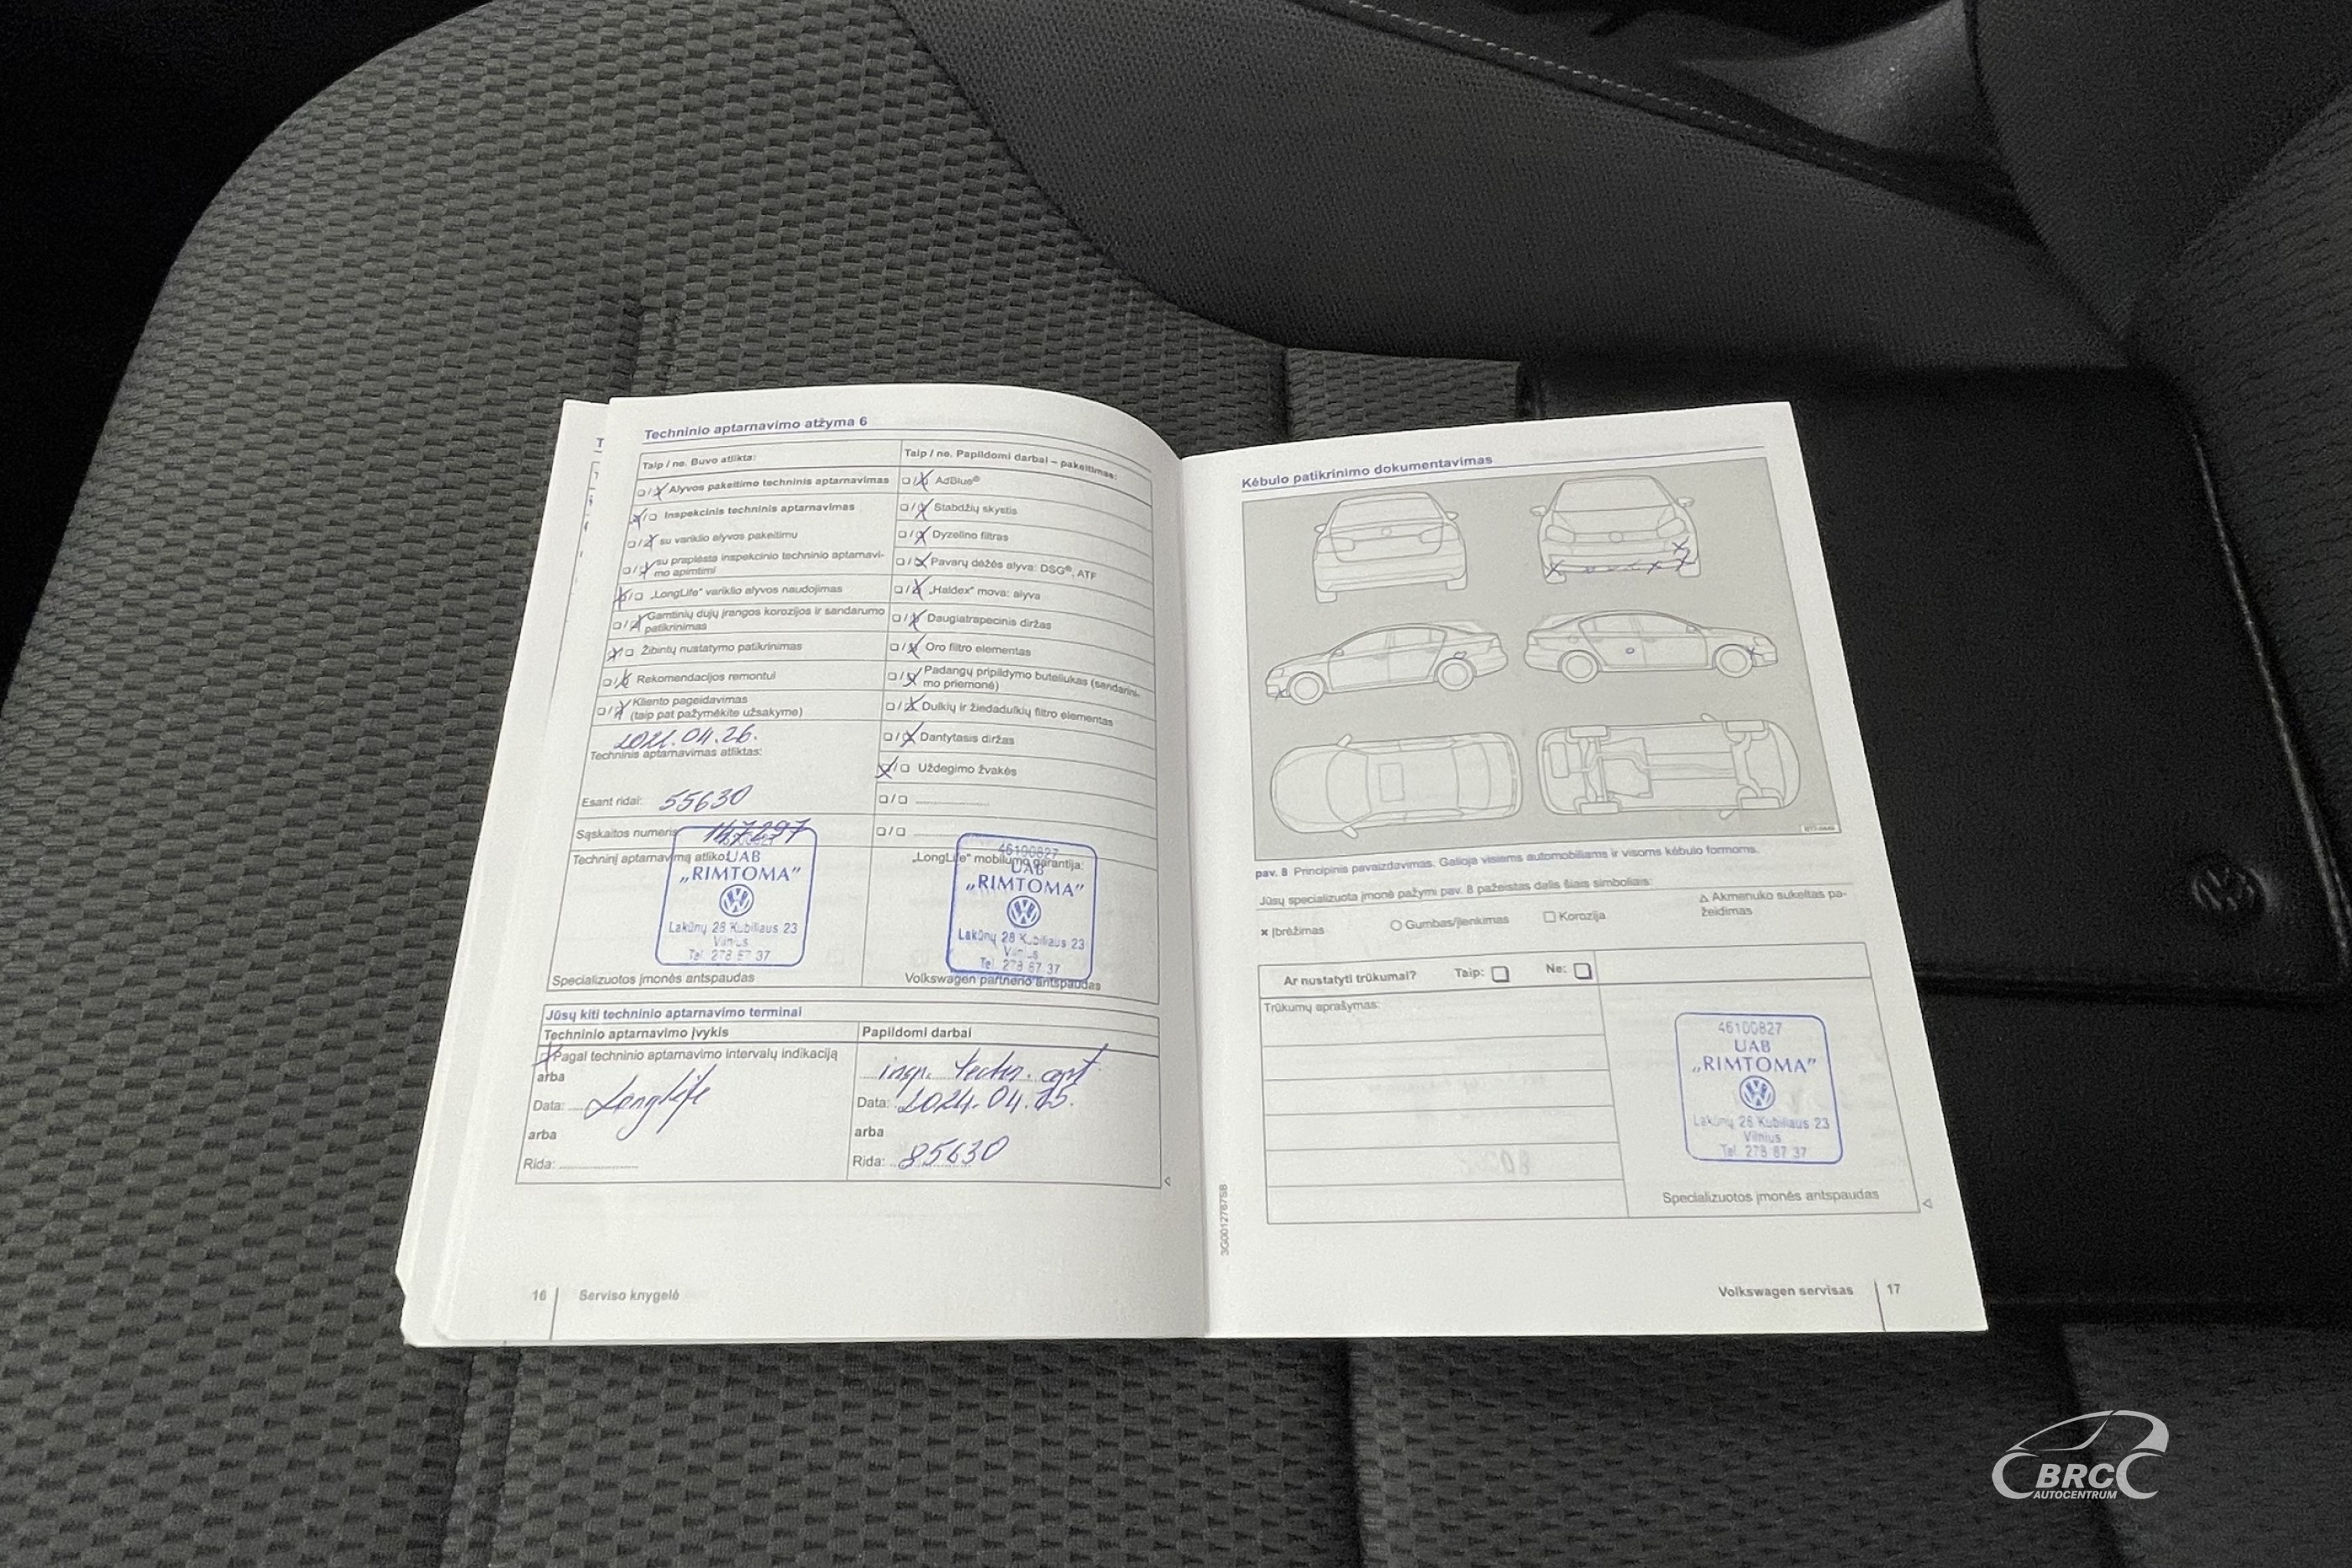 Techninio aptarnavimo atžyma 6
Taip / ne. Buvo atlikta:
Alyvos pakeitimo techninis aptarnavimas
Inspekcinis techninis aptarnavimas
su variklio alyvos pakeitimu
su praplėsta inspekcinio techninio aptarnavi-
mo apimtimi
„LongLife“ variklio alyvos naudojimas
Gamtinių dujų įrangos korozijos ir sandarumo
patikrinimas
Žibintų nustatymo patikrinimas
Rekomendacijos remontui
Kliento pageidavimas
(taip pat pažymėkite užsakyme)
2021.04.26.
Techninis aptarnavimas atliktas:
Esant ridai: 55630
Sąskaitos numeris 147297
Techninį aptarnavimą atliko:
UAB
„RIMTOMA”
Lakūnų 28 Kubiliaus 23
Vilnius
Tel. 278 87 37
Specializuotos įmonės antspaudas
Taip / ne. Papildomi darbai – pakeitimas:
AdBlue®
Stabdžių skystis
Dyzelino filtras
Pavarų dėžės alyva: DSG®, ATF
„Haldex“ mova: alyva
Daugiatrapecinis diržas
Oro filtro elementas
Padangų pripildymo buteliukas (sandarini-
mo priemonė)
Dulkių ir žiedadulkių filtro elementas
Dantytasis diržas
Uždegimo žvakės
„LongLife“ mobilumo garantija:
46100827
UAB
„RIMTOMA”
Lakūnų 28 Kubiliaus 23
Vilnius
Tel. 278 87 37
Volkswagen partnerio antspaudas
Jūsų kiti techninio aptarnavimo terminai
Techninio aptarnavimo įvykis
Pagal techninio aptarnavimo intervalų indikaciją
arba
Data: LongLife
arba
Rida:
Papildomi darbai
insp. techn. apt
Data: 2024.04.25.
arba
Rida: 85630
16 Serviso knygelė
Kėbulo patikrinimo dokumentavimas
pav. 8 Principinis pavaizdavimas. Galioja visiems automobiliams ir visoms kėbulo formoms.
Jūsų specializuota įmonė pažymi pav. 8 pažeistas dalis šiais simboliais:
× Įbrėžimas
Gumbas/įlenkimas
Korozija
Akmenuko sukeltas pa-
žeidimas
Ar nustatyti trūkumai? Taip: Ne:
Trūkumų aprašymas:
46100827
UAB
„RIMTOMA”
Lakūnų 28 Kubiliaus 23
Vilnius
Tel. 278 87 37
Specializuotos įmonės antspaudas
3G0012767SB
Volkswagen servisas 17
BRC
AUTOCENTRUM